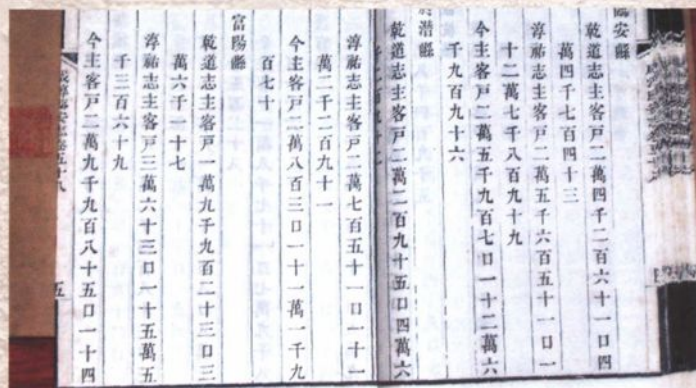 臨安縣
乾道志主客戶二萬四千二百六十一口四
萬四千七百四十三
淳祐志主客戶二萬五千六百五十一口一
十二萬七千八百九十九
今主客戶二萬五千九百七口一十二萬六
千九百九十六
於潛縣
乾道志主客戶二萬二百九十五口四萬六
淳祐志主客戶二萬七百五十一口一十一
萬二千二百九十一
今主客戶二萬八百三口一十一萬一千九
百七十
富陽縣
乾道志主客戶一萬九千九百二十三口三
萬六千一十七
淳祐志主客戶三萬六十三口一十五萬五
千三百六十九
今主客戶二萬九千九百八十五口一十四
咸淳臨安志卷五十八 五